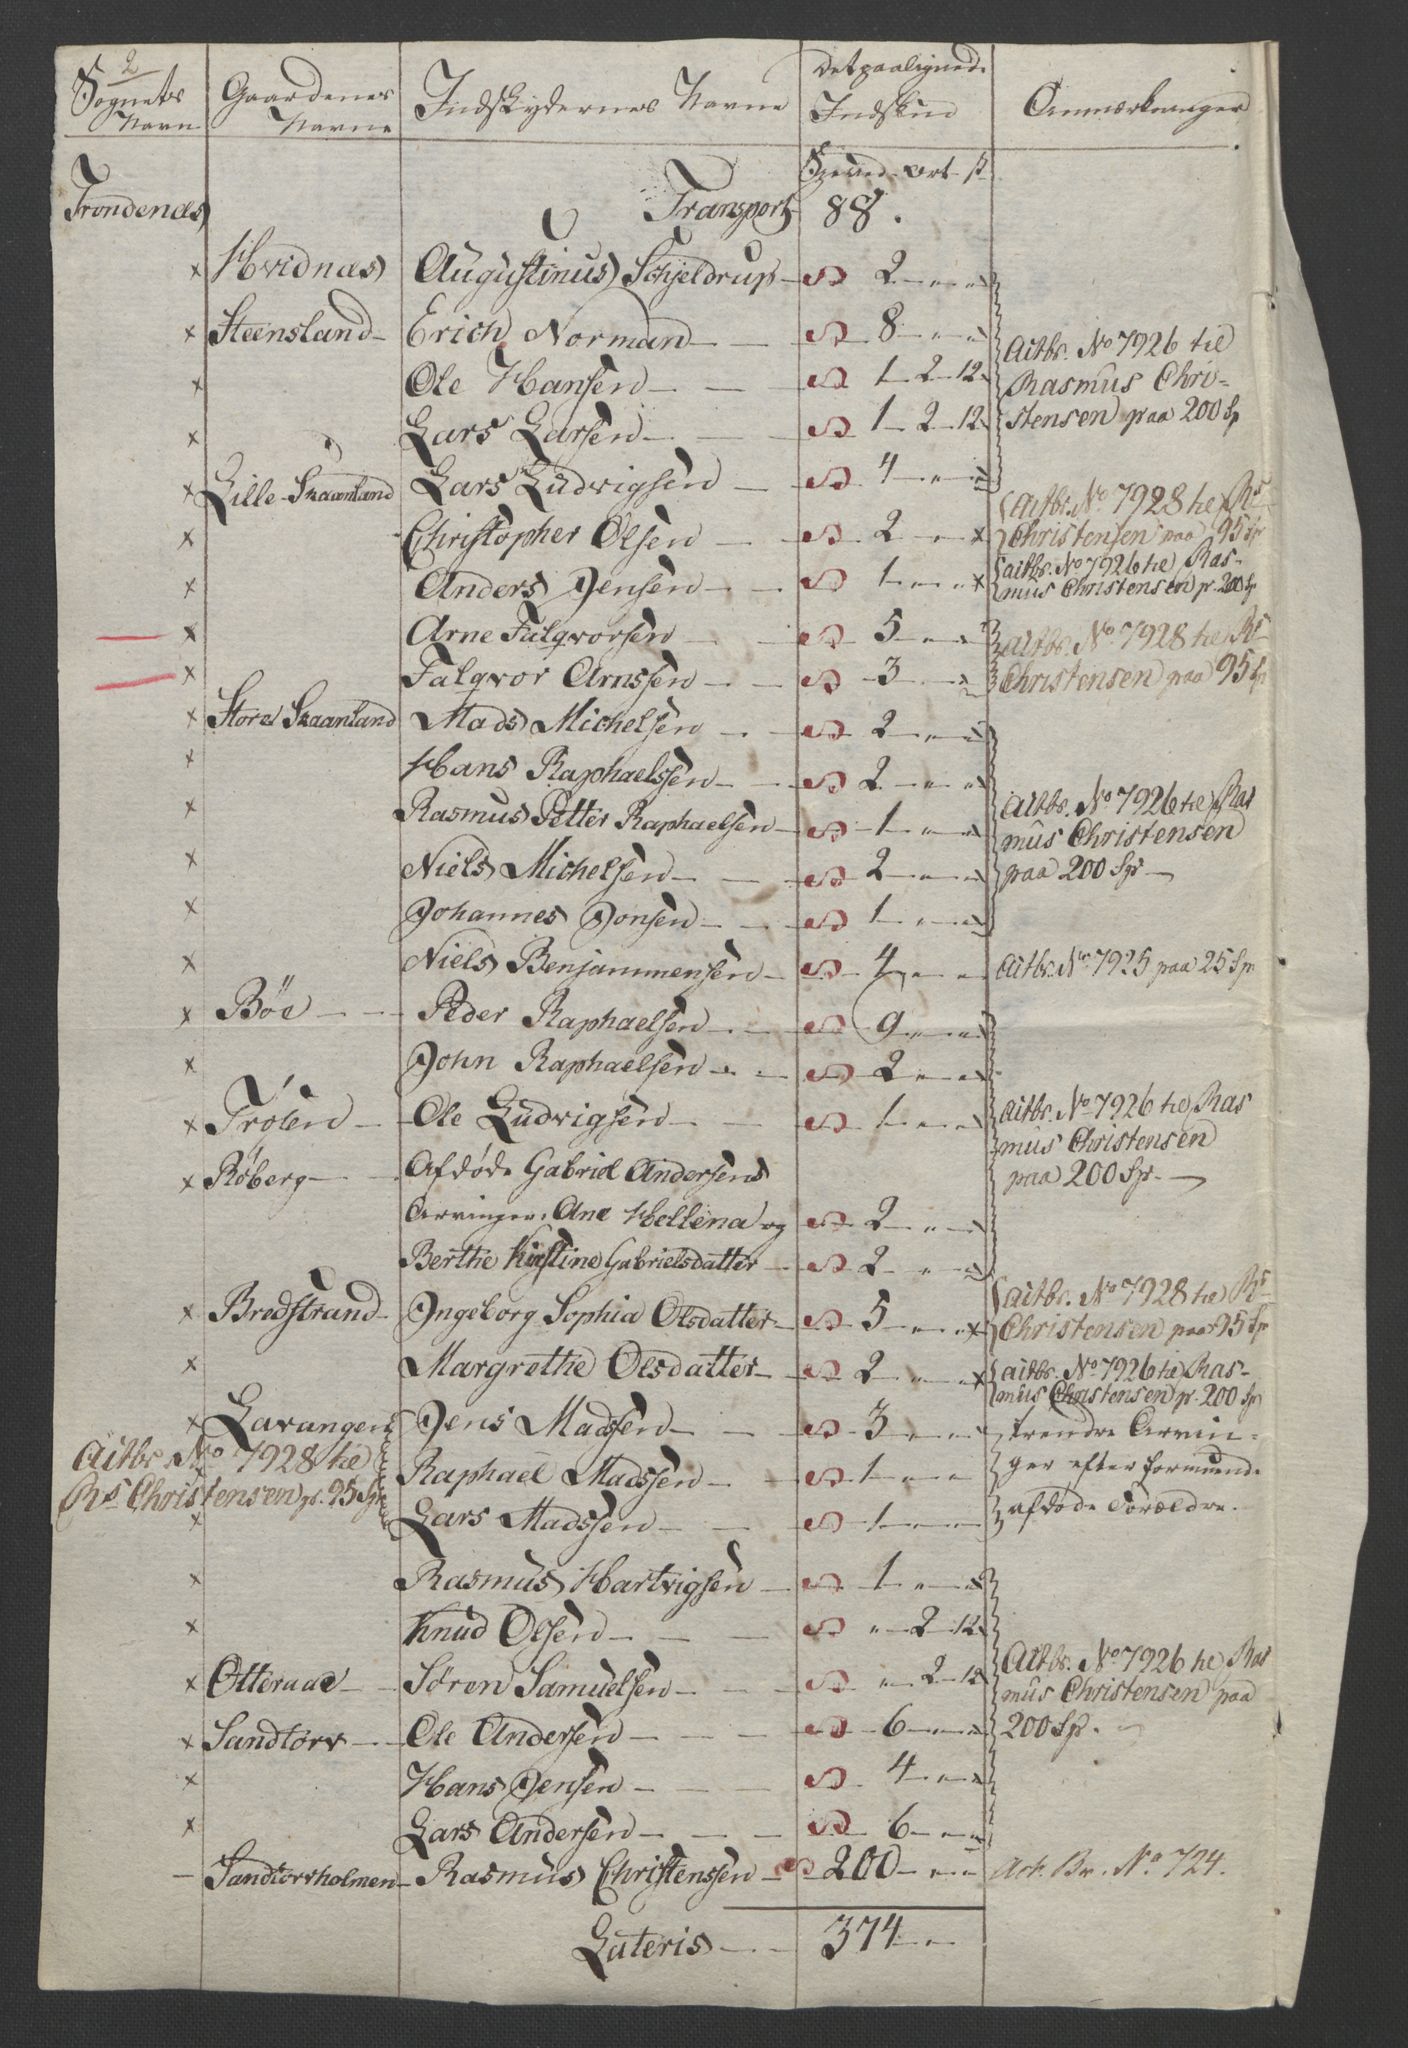 2
Sognets Navn | Gaardenes Navne | Indskydernes Navne | Det paalignede Indskud | Anmærkninger
Specied. Ort. ß
Trondenæs | Transport | 88.
x Hvidnæs | Augustinus Schjeldrup — | 2 „ „
x Steensland — | Erich Norman — | 8 „ „
x | Ole Hansen — | 1 2 12 | Actbr. No 7926 til
x | Lars Larsen — | 1 2 12 | Rasmus Chri-
stensen paa 200 Sp
x Lille Skaanland | Lars Ludvigsen — | 4 „ „
x | Christopher Olsen — | 2 „ „ | Actbr. No 7928 til Rs
Christensen paa 95 Sp
x | Anders Jensen — | 1 „ „ | actbr. No 7926 til Ras-
mus Christensen p. 200 Sp
x | Arne Falqvorsen — | 5 „ „ | actbr. No 7928 til Rs
x | Falqvor Arnssen — | 3 „ „ | Christensen paa 95 Sp
x Store Skaanland | Mads Michelsen — | 2 „ „
x | Hans Raphaelssen — | 2 „ „
x | Rasmus Petter Raphaelsen — | 1 „ „ | Actbr. No 7926 til Ras
mus Christensen
x | Niels Michelsen — | 2 „ „ | paa 200 Spr —
x | Johannes Jonsen — | 1 „ „
x | Niels Benjammensen — | 4 „ „ | Actbr. No 7925 paa 25 Sp
x Böe — | Peder Raphaelsen — | 9 „ „
x | John Raphaelsen — | 2 „ „
x Trølen — | Ole Ludvigsen — | 1 „ „ | Actbr. No 7926 til Ras
mus Christensen
x Röberg — | Afdöde Gabriel Andersens | paa 200 Sp. —
Arvinger. Ane Hellena og | 2 „ „
Berthe Kirstine Gabrielsdatter — | 2 „ „
x Bredstrand — | Ingeborg Sophia Olsdatter — | 5 „ „ | actbr. No 7928 til Rs
Christensen paa 95 Sp
x | Margrethe Olsdatter — | 2 „ „ | actbr. No 7926 til Ras-
mus Christensen p. 200 Sp
x Gavangen | Jens Madssen — | 3 „ „ | trendre Arvin-
Actbr. No 7928 til
x | Raphael Madssen — | 1 „ „ | ger efter formuend.
Rs Christensen p. 95 Sp
x | Lars Madssen — | 1 „ „ | afdøde Forældre.
x | Rasmus Hartvigsen — | 1 „ „
x | Knud Olsen — | „ 2 12
x Otteraae — | Sören Samuelsen — | „ 2 12 | Actbr. No 7926 til Ras
mus Christensen paa
x Sandtorv — | Ole Andersen — | 6 „ „ | 200 Sp. —
x | Hans Jensen — | 4 „ „
x | Lars Andersen — | 6 „ „
— Sandtorvholmen — | Rasmus Christenssen — | 200 „ „ | Act. Br. No 724.
Lateris — | 374 „